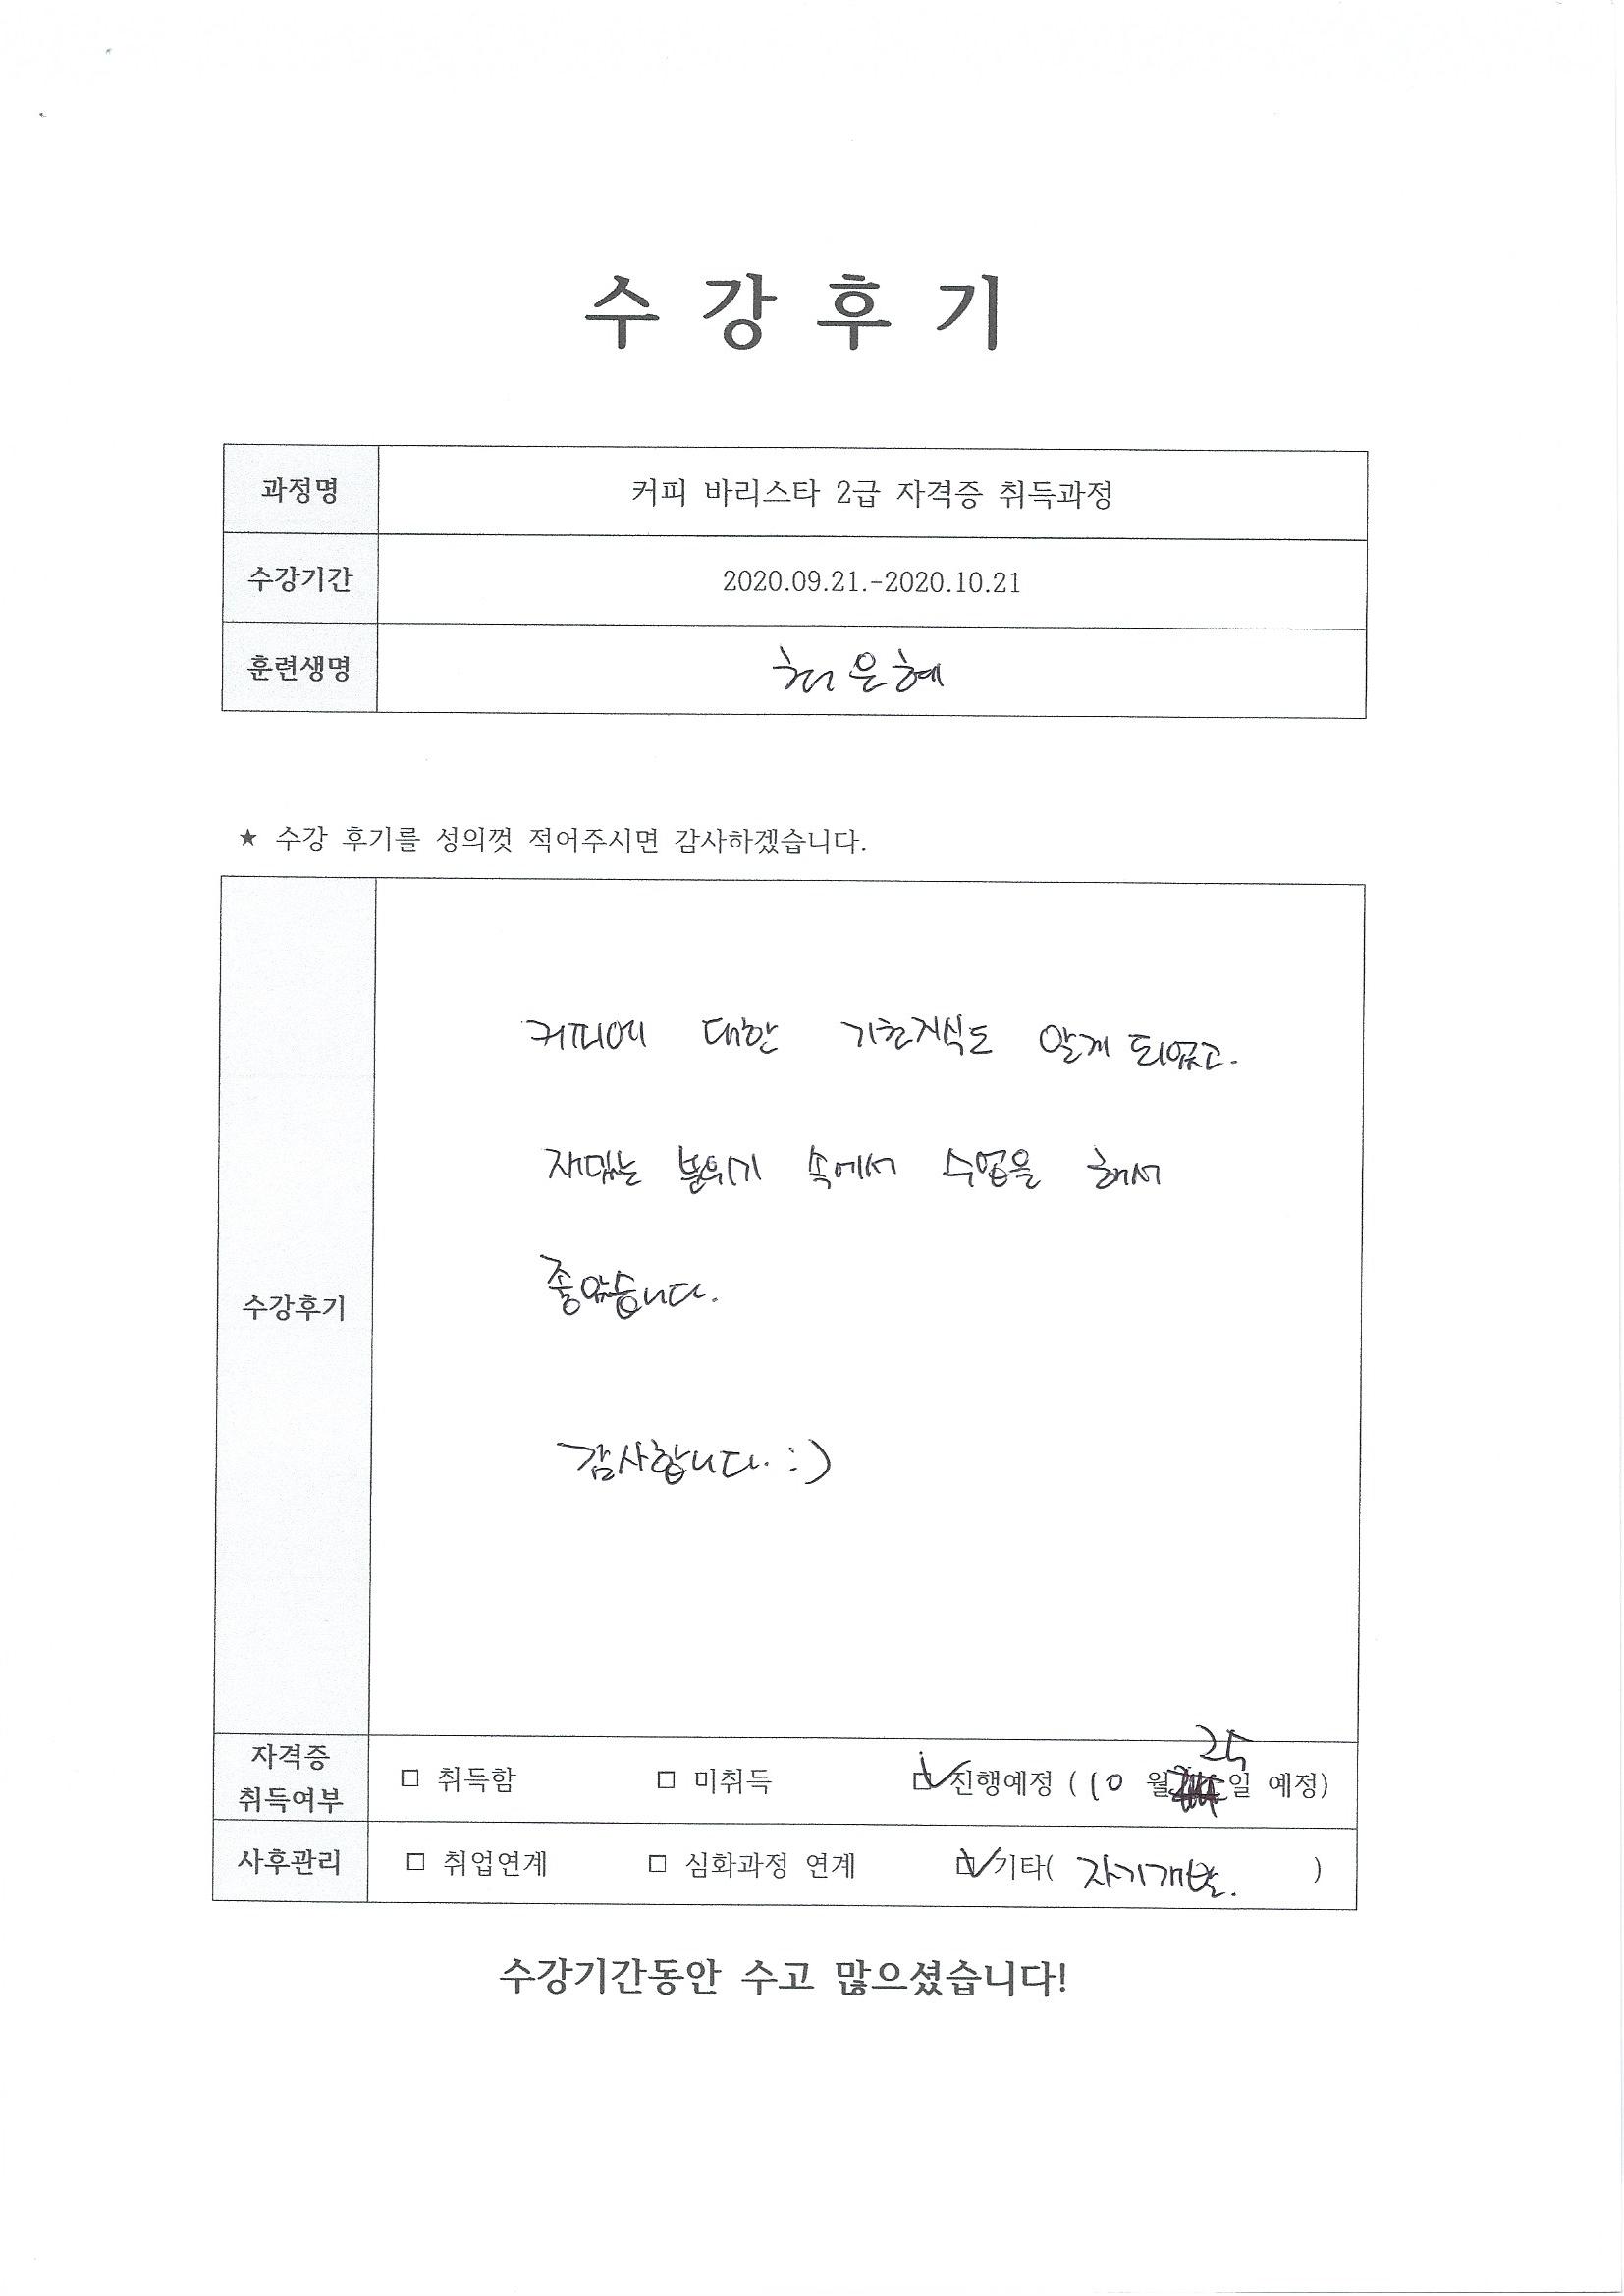 수 강 후 기
과정명 커피 바리스타 2급 자격증 취득과정
수강기간 2020.09.21.-2020.10.21
훈련생명 은혜
★ 수강 후기를 성의껏 적어주시면 감사하겠습니다.
수강후기
커피에 대한 기초지식도 알게 되었고.
재밌는 분위기 속에서 수업을 해서
좋았습니다.
감사합니다. :)
자격증
취득여부
□ 취득함 □ 미취득 ☑ 진행예정 (10 월 25 일 예정)
사후관리 □ 취업연계 □ 심화과정 연계 ☑ 기타( 자기개발. )
수강기간동안 수고 많으셨습니다!